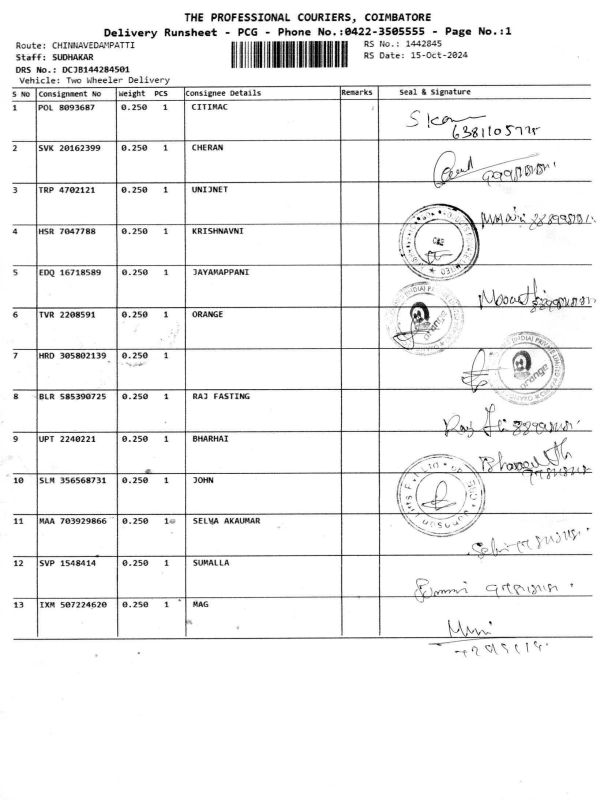 THE PROFESSIONAL COURIERS, COIMBATORE
Delivery Runsheet - PCG - Phone No.:0422-3505555 - Page No.:1
Route: CHINNAVEDAMPATTI RS No.: 1442845
Staff: SUDHAKAR RS Date: 15-Oct-2024
DRS No.: DCJB144284501
Vehicle: Two Wheeler Delivery
S No Consignment No Weight PCS Consignee Details Remarks Seal & Signature
1 POL 8093687 0.250 1 CITIMAC
2 SVK 20162399 0.250 1 CHERAN
3 TRP 4702121 0.250 1 UNIJNET
4 HSR 7047788 0.250 1 KRISHNAVNI
5 EDQ 16718589 0.250 1 JAYAMAPPANI
6 TVR 2208591 0.250 1 ORANGE
orange
7 HRD 305802139 0.250 1
orange
8 BLR 585390725 0.250 1 RAJ FASTING
9 UPT 2240221 0.250 1 BHARHAI
10 SLM 356568731 0.250 1 JOHN
11 MAA 703929866 0.250 1 SELVA AKAUMAR
12 SVP 1548414 0.250 1 SUMALLA
13 IXM 507224620 0.250 1 MAG